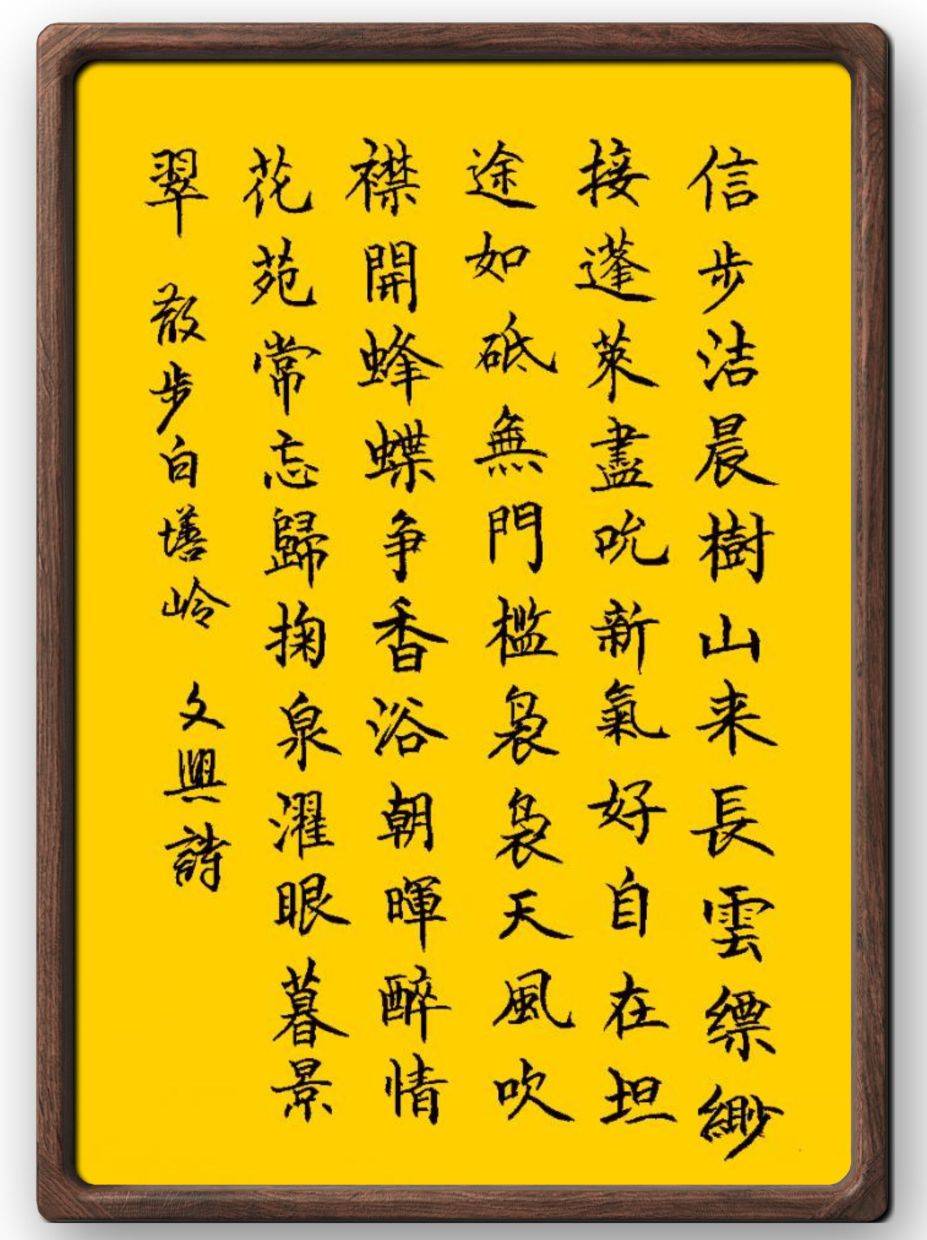 信步洁晨樹山来長雲缥緲
接蓬萊盡吮新氣好自在坦
途如砥無門檻袅袅天風吹
襟開蜂蝶争香浴朝暉醉情
花苑常忘歸掬泉濯眼暮景
翠 散步白塔岭 文興詩